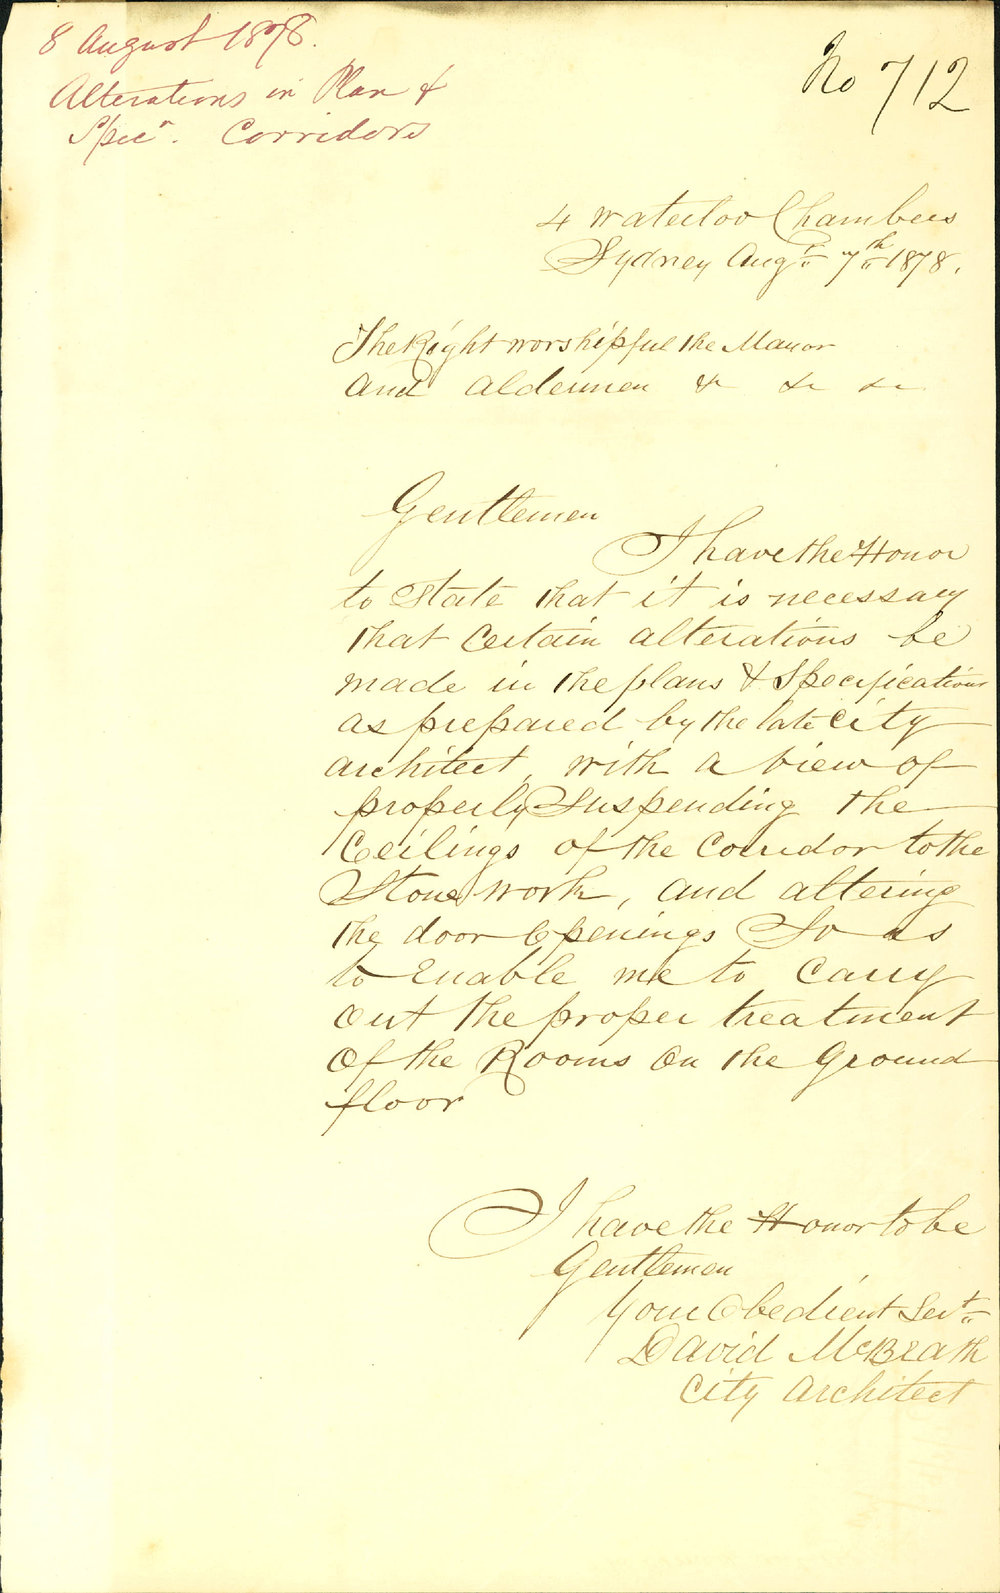 8 August 1878.
Alterations in Plan &
Specn. Corridors
No 712
4 Waterloo Chambers
Sydney Augt 7th 1878.
The Right worshipful the Mayor
and Aldermen &c &c &c
Gentlemen
I have the Honor
to State that it is necessary
that Certain alterations be
made in the plans & Specifications
as prepared by the late City
architect, with a view of
properly Suspending the
Ceilings of the Corridor to the
Stone work, and altering
the door Openings So as
to Enable me to Carry
Out the proper treatment
Of the Rooms On the Ground
floor
I have the Honor to be
Gentlemen
Your Obedient Servt
David McBeath
City Architect